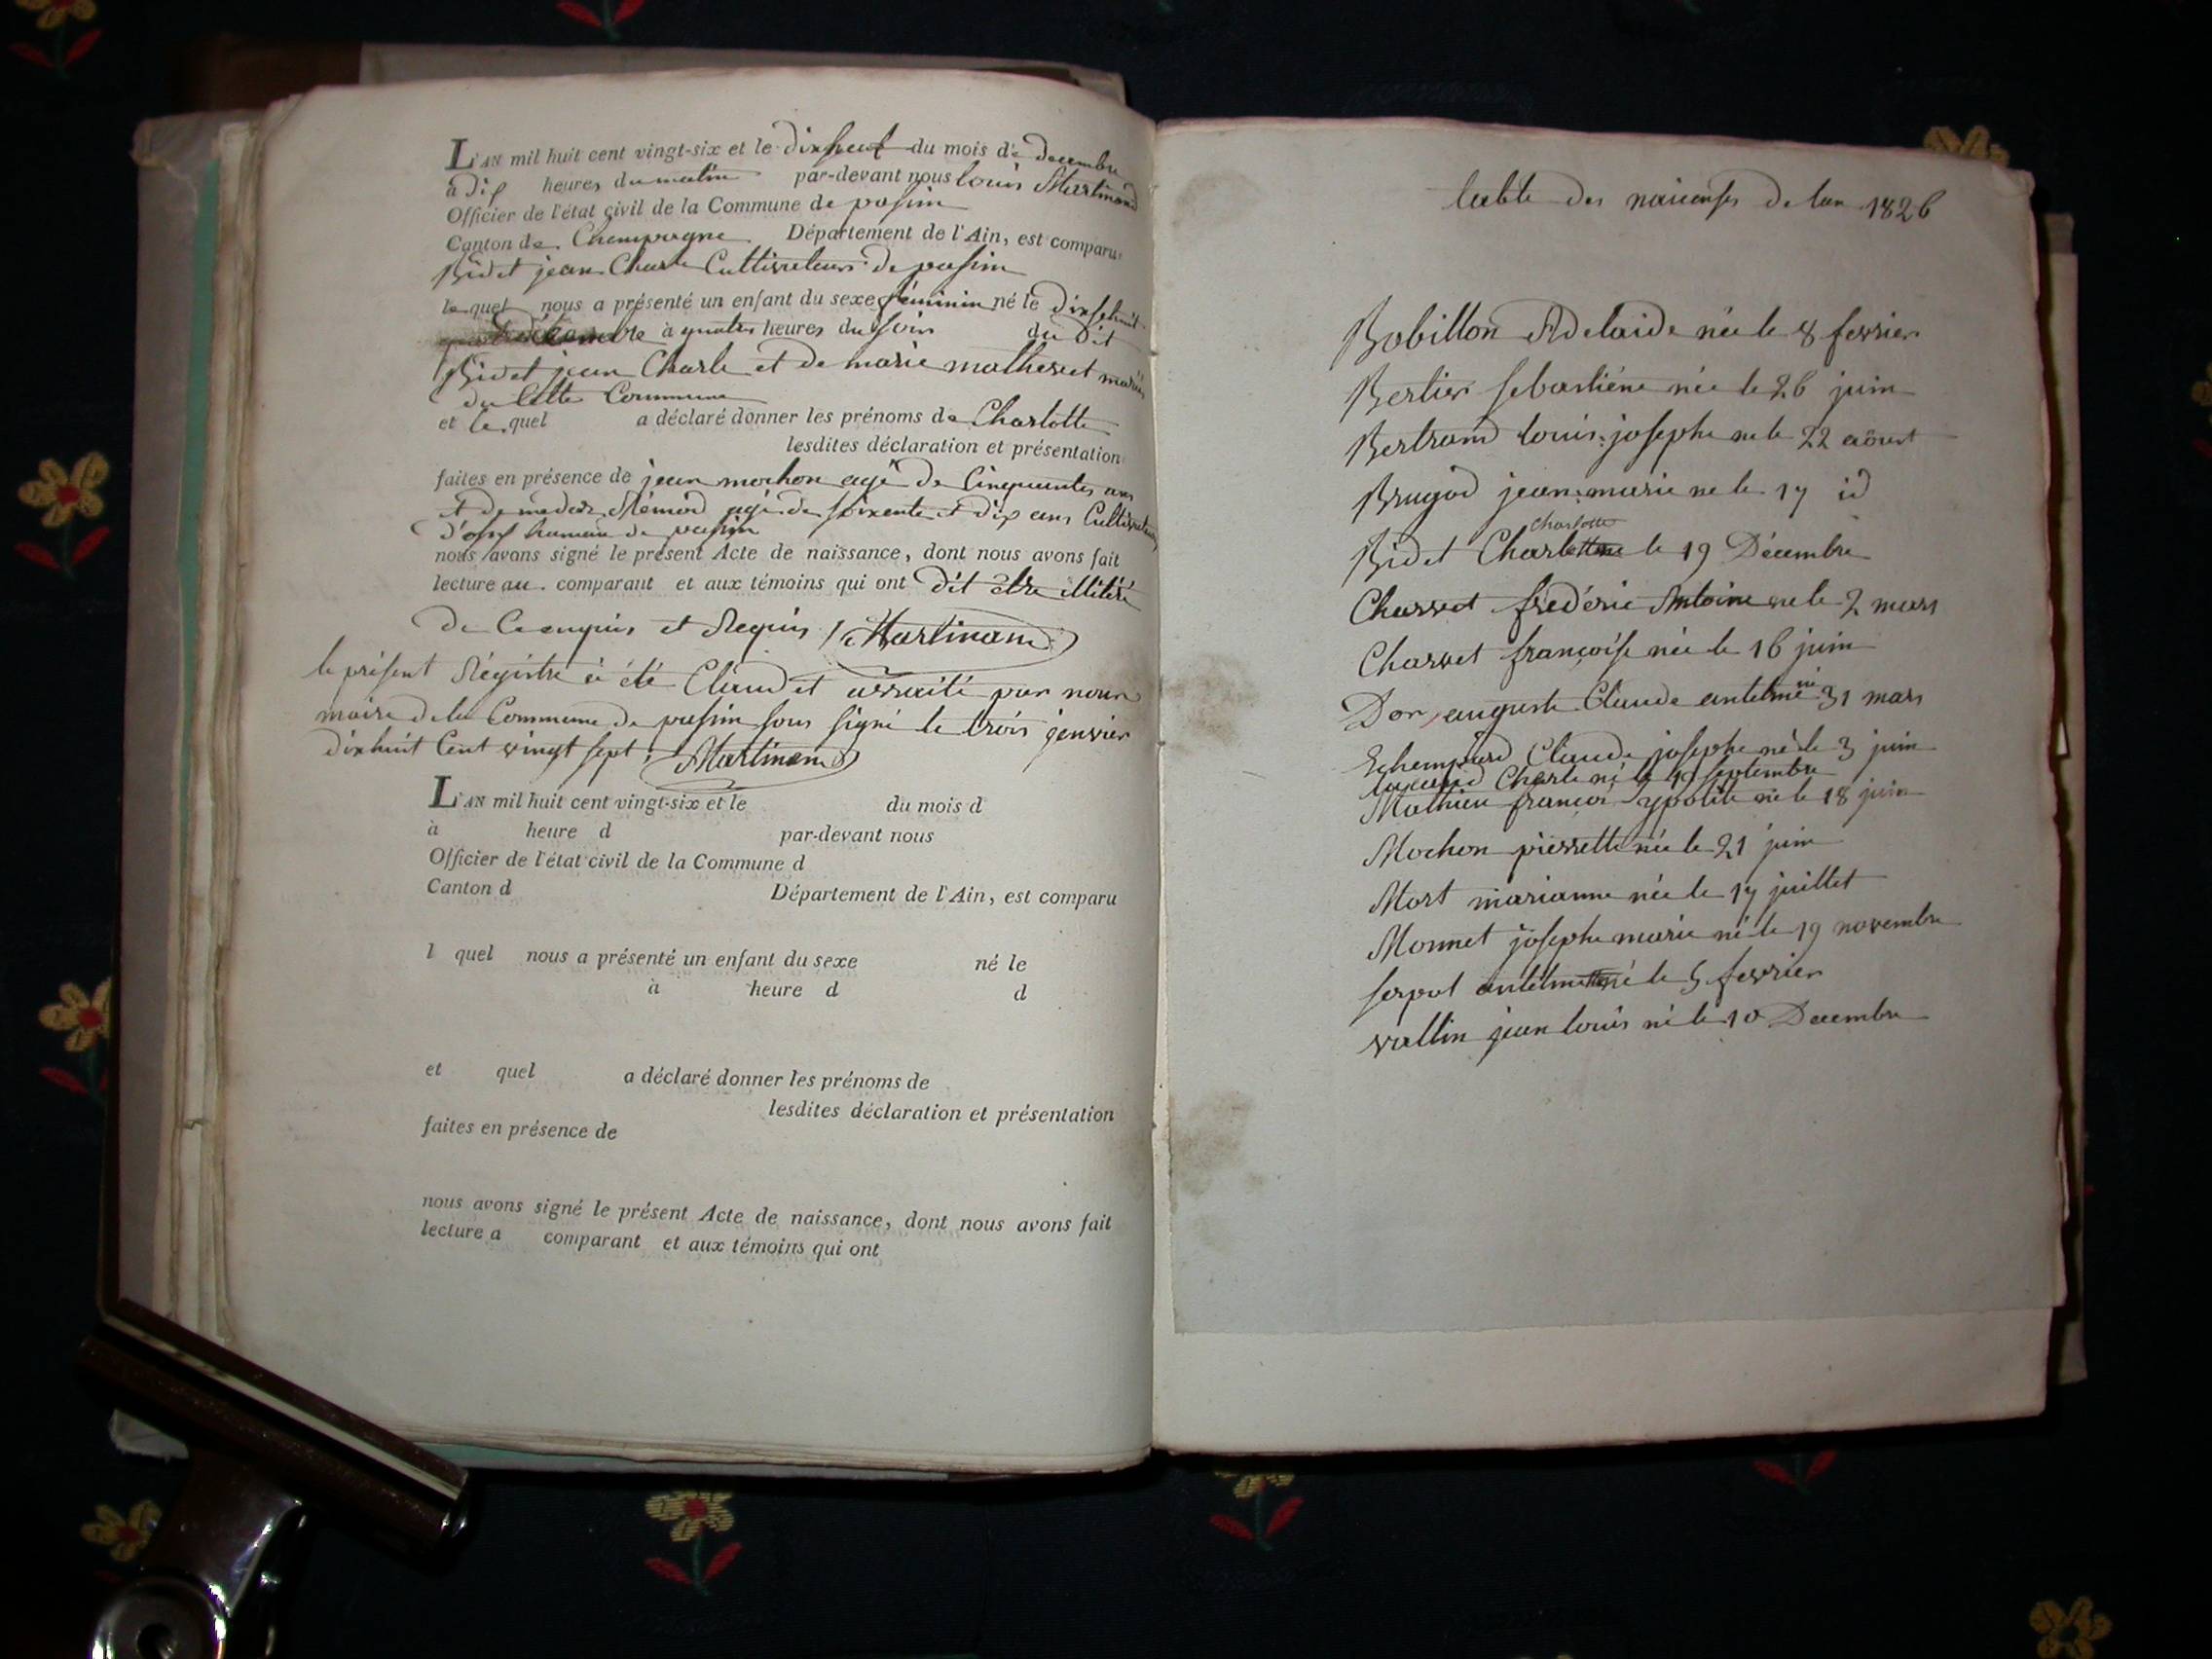 L'AN mil huit cent vingt-six et le dixneuf du mois de decembre
à dix heures du matin par-devant nous louis Martinand
Officier de l'état civil de la Commune de pasin
Canton de Champagne Département de l'Ain, est comparu
Bidet jean Charle Cultivateur de pasin
le quel nous a présenté un enfant du sexe féminin né le dixhuit
à quatre heures du soir du dit
Bidet jean Charle et de marie matheret mariés
de Cette Commune
et le quel a déclaré donner les prénoms de Charlotte
lesdites déclaration et présentation
faites en présence de jean mochon agé de Cinquantes ans
et de agé de soixente et dix ans Cultivateurs
hameau de pasin
nous avons signé le présent Acte de naissance, dont nous avons fait
lecture au comparant et aux témoins qui ont dit etre illitéré
de Ce enquis et Requis Martinand
le présent Régistre à été Clau et arraité par nous
maire de la Commune de pasin sous signé le trois janvier
dixhuit Cent vingt sept. Martinand
L'AN mil huit cent vingt-six et le du mois d
à heure d par-devant nous
Officier de l'état civil de la Commune d
Canton d Département de l'Ain, est comparu
l quel nous a présenté un enfant du sexe né le
à heure d d
et quel a déclaré donner les prénoms de
lesdites déclaration et présentation
faites en présence de
nous avons signé le présent Acte de naissance, dont nous avons fait
lecture a comparant et aux témoins qui ont
table des naicenses de lan 1826
Bobillon Adelaide née le 8 fevrier
Bertier sebastiéne née le 26 juin
Bertrand louis josephe ne le 22 aôust
Brugod jean marie ne le 17 id
Charlotte
Bidet le 19 Décembre
Charvet fréderic Antoine ne le 2 mars
Charvet françoise née le 16 juin
Dor auguste Claude antelme né 31 mars
Echempard Claude josephe né le 3 juin
Charle né le 19 septembre
Mathieu françoi ypolite né le 18 juin
Mochon pierrette née le 21 juin
Mort marianne née le 17 juillet
Monnet josephe marie né le 19 novembre
serpol antelme né le 5 fevrier
vallin jean louis né le 10 Decembre